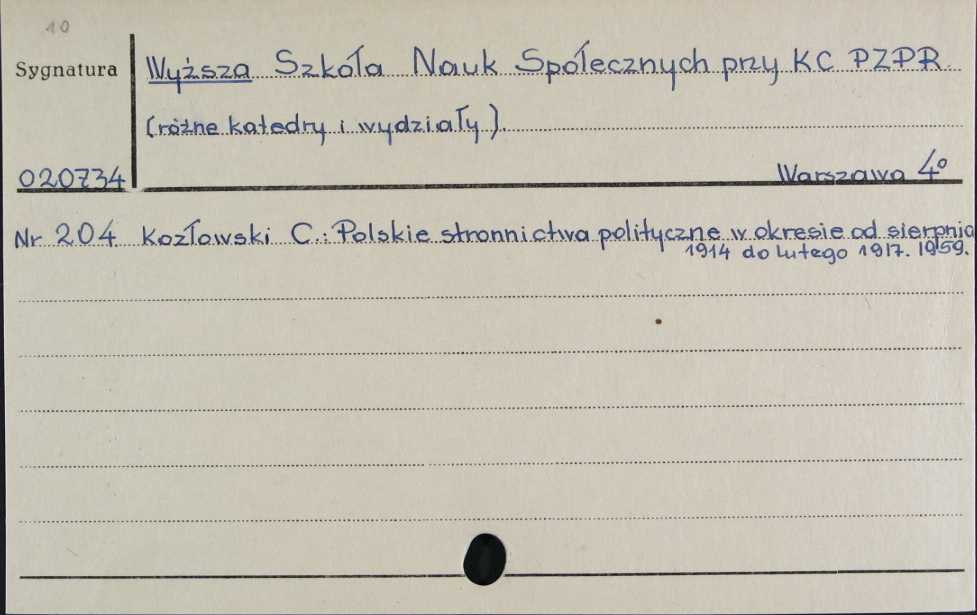 10
Sygnatura
Wyższa Szkóła Nauk Społecznych przy KC PZPR
(różne katedry i wydziały).
020734
Warszawa 4º
Nr 204 Kozłowski C.: Polskie stronnictwa polityczne w okresie od sierpnia
1914 do lutego 1917. 1959.